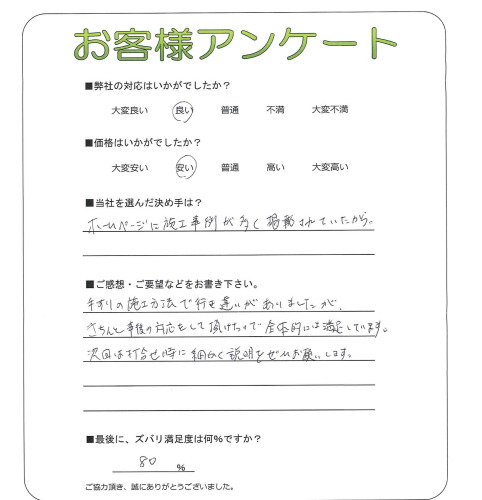 お客様アンケート
■弊社の対応はいかがでしたか？
大変良い 良い 普通 不満 大変不満
■価格はいかがでしたか？
大変安い 安い 普通 高い 大変高い
■当社を選んだ決め手は？
ホームページに施工事例が多く掲載されていたから。
■ご感想・ご要望などをお書き下さい。
手すりの施工方法で行き違いがありましたが、
きちんと事後の対応をして頂けたので全体的には満足しています。
次回は打合せ時に細かく説明をぜひお願いします。
■最後に、ズバリ満足度は何%ですか？
80 %
ご協力頂き、誠にありがとうございました。